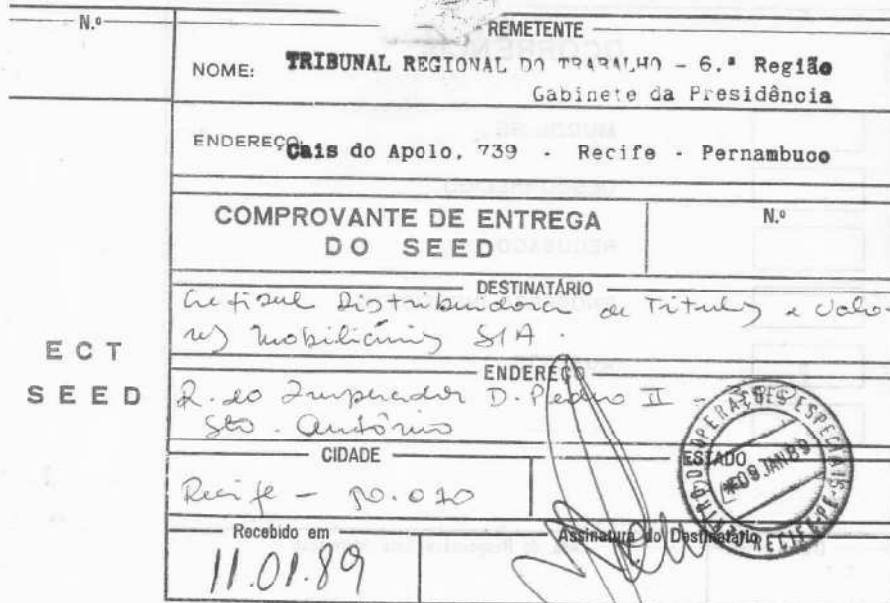 N.º
REMETENTE
NOME: TRIBUNAL REGIONAL DO TRABALHO - 6.ª Região
Gabinete da Presidência
ENDEREÇO: Cais do Apolo, 739 - Recife - Pernambuco
COMPROVANTE DE ENTREGA
DO SEED
N.º
ECT
SEED
DESTINATÁRIO
Crefisul Distribuidora de Titulos e Valo-
res Mobiliários S/A.
ENDEREÇO
R. do Imperador D. Pedro II -
Sto. Antônio
CIDADE
ESTADO
Recife - 50.010
CENTRO DE OPERAÇÕES ESPECIAIS
09 JAN 89
RECIFE-PE
Recebido em
Assinatura do Destinatário
11.01.89